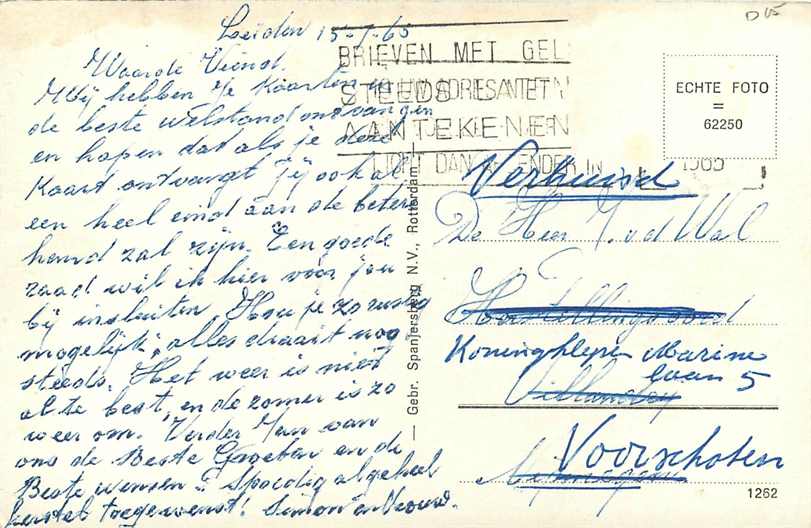 Leiden 15-7-65
Waarde Vriend.
Wij hebben Je Kaarten in
de beste welstand ontvangen
en hopen dat als je deze
Kaart ontvangt Jij ook al
een heel eind aan de betere
hand zal zijn. Een goede
raad wil ik hier voor jou
bij insluiten Hou je zo rustig
mogelijk, alles draait nog
steeds. Het weer is niet
al te best, en de zomer is zo
weer om. Verder Jan van
ons de Beste Groeten en de
Beste wensen: Spoedig algeheel
herstel toegewenst! Simon en Vrouw.
BRIEVEN MET GEL
STEEDS LATEN
AANTEKENEN
1965
— Gebr. Spanjersberg N.V., Rotterdam —
ECHTE FOTO
=
62250
Verhuisd
De Heer J. v d Wal
Marine
laan 5
Voorschoten
Nijmegen
1262